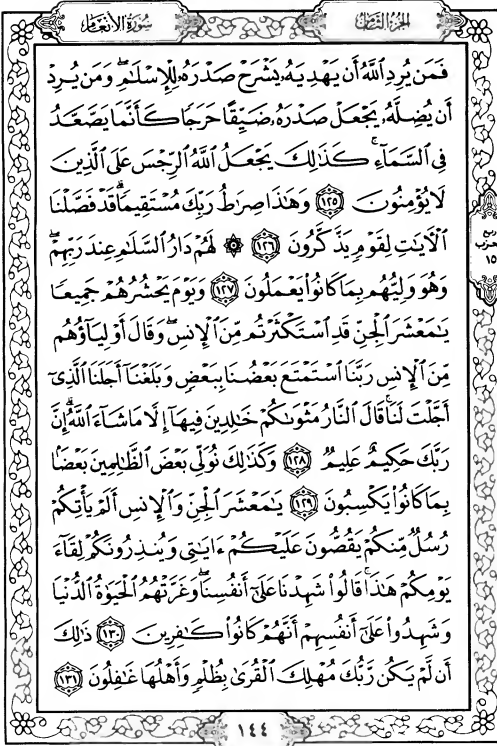 سورة الأنعام الجزء الثامن
فَمَن يُرِدِ ٱللَّهُ أَن يَهْدِيَهُۥ يَشْرَحْ صَدْرَهُۥ لِلْإِسْلَٰمِ ۖ وَمَن يُرِدْ
أَن يُضِلَّهُۥ يَجْعَلْ صَدْرَهُۥ ضَيِّقًا حَرَجًا كَأَنَّمَا يَصَّعَّدُ
فِى ٱلسَّمَآءِ ۚ كَذَٰلِكَ يَجْعَلُ ٱللَّهُ ٱلرِّجْسَ عَلَى ٱلَّذِينَ
لَا يُؤْمِنُونَ ١٢٥ وَهَٰذَا صِرَٰطُ رَبِّكَ مُسْتَقِيمًا ۗ قَدْ فَصَّلْنَا
ٱلْءَايَٰتِ لِقَوْمٍ يَذَّكَّرُونَ ١٢٦ ۞ لَهُمْ دَارُ ٱلسَّلَٰمِ عِندَ رَبِّهِمْ ۖ
ربع
حزب
١٥
وَهُوَ وَلِيُّهُم بِمَا كَانُوا۟ يَعْمَلُونَ ١٢٧ وَيَوْمَ يَحْشُرُهُمْ جَمِيعًا
يَٰمَعْشَرَ ٱلْجِنِّ قَدِ ٱسْتَكْثَرْتُم مِّنَ ٱلْإِنسِ ۖ وَقَالَ أَوْلِيَآؤُهُم
مِّنَ ٱلْإِنسِ رَبَّنَا ٱسْتَمْتَعَ بَعْضُنَا بِبَعْضٍ وَبَلَغْنَآ أَجَلَنَا ٱلَّذِىٓ
أَجَّلْتَ لَنَا ۚ قَالَ ٱلنَّارُ مَثْوَىٰكُمْ خَٰلِدِينَ فِيهَآ إِلَّا مَا شَآءَ ٱللَّهُ ۗ إِنَّ
رَبَّكَ حَكِيمٌ عَلِيمٌ ١٢٨ وَكَذَٰلِكَ نُوَلِّى بَعْضَ ٱلظَّٰلِمِينَ بَعْضًۢا
بِمَا كَانُوا۟ يَكْسِبُونَ ١٢٩ يَٰمَعْشَرَ ٱلْجِنِّ وَٱلْإِنسِ أَلَمْ يَأْتِكُمْ
رُسُلٌ مِّنكُمْ يَقُصُّونَ عَلَيْكُمْ ءَايَٰتِى وَيُنذِرُونَكُمْ لِقَآءَ
يَوْمِكُمْ هَٰذَا ۚ قَالُوا۟ شَهِدْنَا عَلَىٰٓ أَنفُسِنَا ۖ وَغَرَّتْهُمُ ٱلْحَيَوٰةُ ٱلدُّنْيَا
وَشَهِدُوا۟ عَلَىٰٓ أَنفُسِهِمْ أَنَّهُمْ كَانُوا۟ كَٰفِرِينَ ١٣٠ ذَٰلِكَ
أَن لَّمْ يَكُن رَّبُّكَ مُهْلِكَ ٱلْقُرَىٰ بِظُلْمٍ وَأَهْلُهَا غَٰفِلُونَ ١٣١
١٤٤